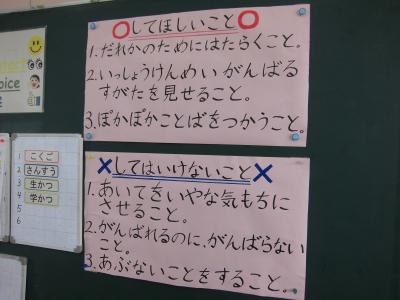 ⭕してほしいこと⭕
1.だれかのためにはたらくこと。
2.いっしょうけんめい がんばる
すがたを見せること。
3.ぽかぽかことばをつかうこと。
×してはいけないこと×
1.あいてをいやな気もちに
させること。
2.がんばれるのに、がんばらない
こと。
3.あぶないことをすること。
oice
1 こくご
2 さんすう
3 生かつ
4 学かつ
5
6